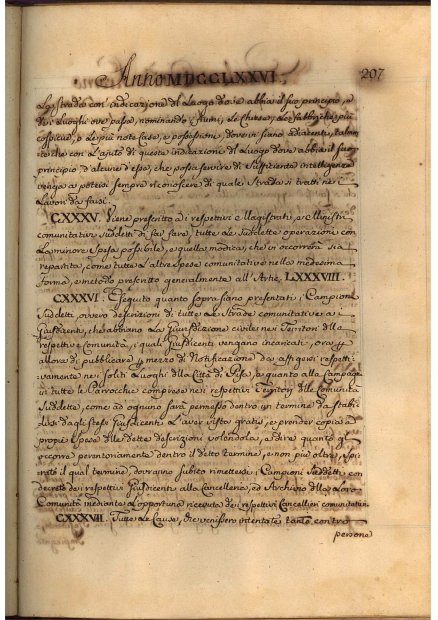 Anno MDCCLXXVI.
207
Le strade con indicazione del Luogo dove abbia il suo principio, e
di i Luoghi ove passa, nominando i Fiumi, le Chiese, le Fabbriche più
cospicue, o le più note Case, e possessioni, dove vi siano adiacenti, talmen
te che con l'ajuto di queste indicazioni di Luogo dove abbia il suo
principio, d'alcune d'esso, che possa servire di sufficiente intelligenza
venga a potersi sempre riconoscere di quale Strada si tratti ne i
Lavori da farsi.
CXXXV. Viene prescritto a i respettivi Magistrati, e Ministri
comunitativi suddetti di far fare, tutte le suddette operazioni con
la minore spesa possibile, e quella modica, che vi occorrerà sia
repartita, come tutte l'altre spese comunitative nella medesima
forma, e metodo prescritto generalmente all'Artic. LXXXVIII.
CXXXVI. Eseguito quanto sopra siano presentati i Campioni
suddetti ovvero descrizioni di tutte le strade comunitative a i
Giusdicenti, che abbiano la Giurisdizione civile nei Territori della
respettiva Comunità, i quali Giusdicenti vengano incaricati, ora p
allora di pubblicare p mezzo di Notificazione da affiggersi respetti
vamente nei soliti Luoghi della Città di Pisa, e quanto alla Campagna
in tutte le Parrocchie comprese nei respettivi Territori delle Comunità
suddette, come ad ognuno sarà permesso dentro un termine da stabi
lirsi dagli stessi Giusdicenti l'aver visto gratis, e prender copia a
proprie spese delle dette descrizioni volendola, e dire quanto gl'
occorra perentoriamente dentro il detto termine, e non più oltre, spi
rato il qual termine, dovranno subito rimettersi i Campioni suddetti con
decreto dei respettivi Giusdicenti alla Cancelleria, ed Archivio della Loro
Comunità mediante l'opportuna ricevuta dei respettivi Cancellieri comunitativi.
CXXXVII. Tutte le Cause, che venissero intentate tanto contro
persone